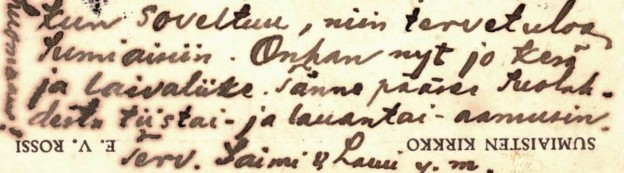 kun soveltuu, niin tervetuloa
Sumiaisiin. Onhan nyt jo kesä
ja laivaliike. Sänne pääsee Suolah-
desta tiistai- ja lauantai-aamusin.
Terv. Saimi & Lauri y. m.
SUMIAISTEN KIRKKO
E. V. ROSSI